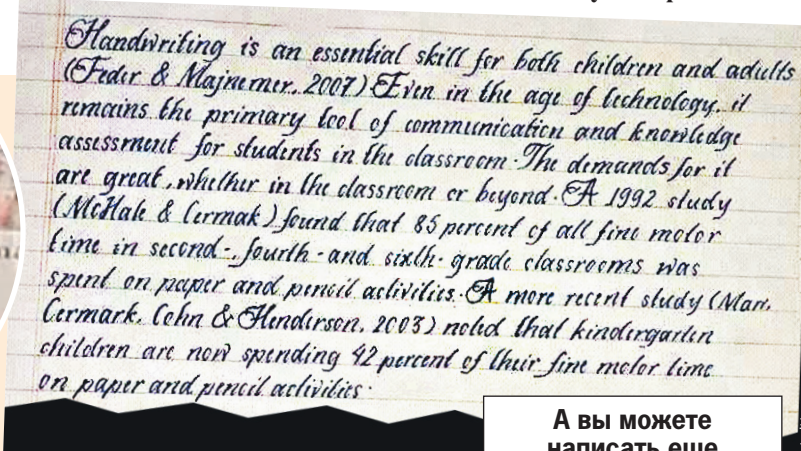 Handwriting is an essential skill for both children and adults
(Feder & Majnemer, 2007) Even in the age of technology, it
remains the primary tool of communication and knowledge
assessment for students in the classroom. The demands for it
are great, whether in the classroom or beyond. A 1992 study
(McHale & Cermak) found that 85 percent of all fine motor
time in second-, fourth- and sixth-grade classrooms was
spent on paper and pencil activities. A more recent study (Marr,
Cermark, Cohn & Henderson, 2003) noted that kindergarten
children are now spending 42 percent of their fine motor time
on paper and pencil activities.
А вы можете
написать еще